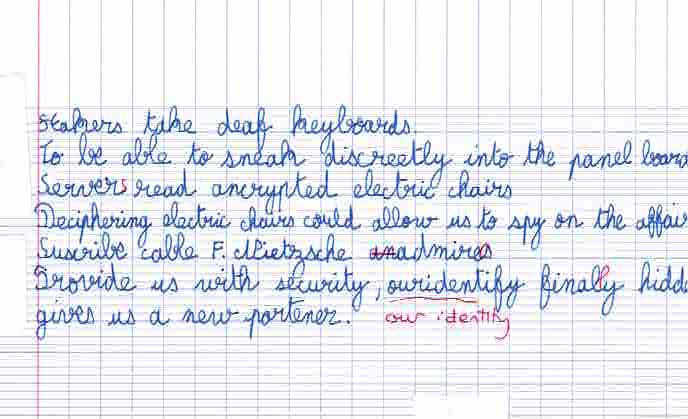 Stakers take deaf keyboards.
To be able to sneak discreetly into the panel board
Servers read ancrypted electric chairs
Deciphering electric chairs could allow us to spy on the affair
Suscribe cable F. Nietzsche admires
Provide us with security, ouridentify finally hidd
gives us a new partener.
our identity